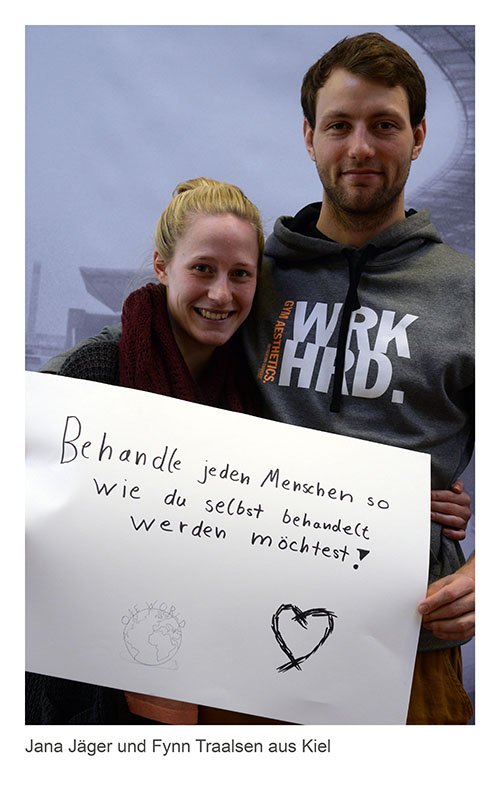 GYM AESTHETICS.
WRK
HRD.
Behandle jeden Menschen so
wie du selbst behandelt
werden möchtest!
ONE WORLD
Jana Jäger und Fynn Traalsen aus Kiel